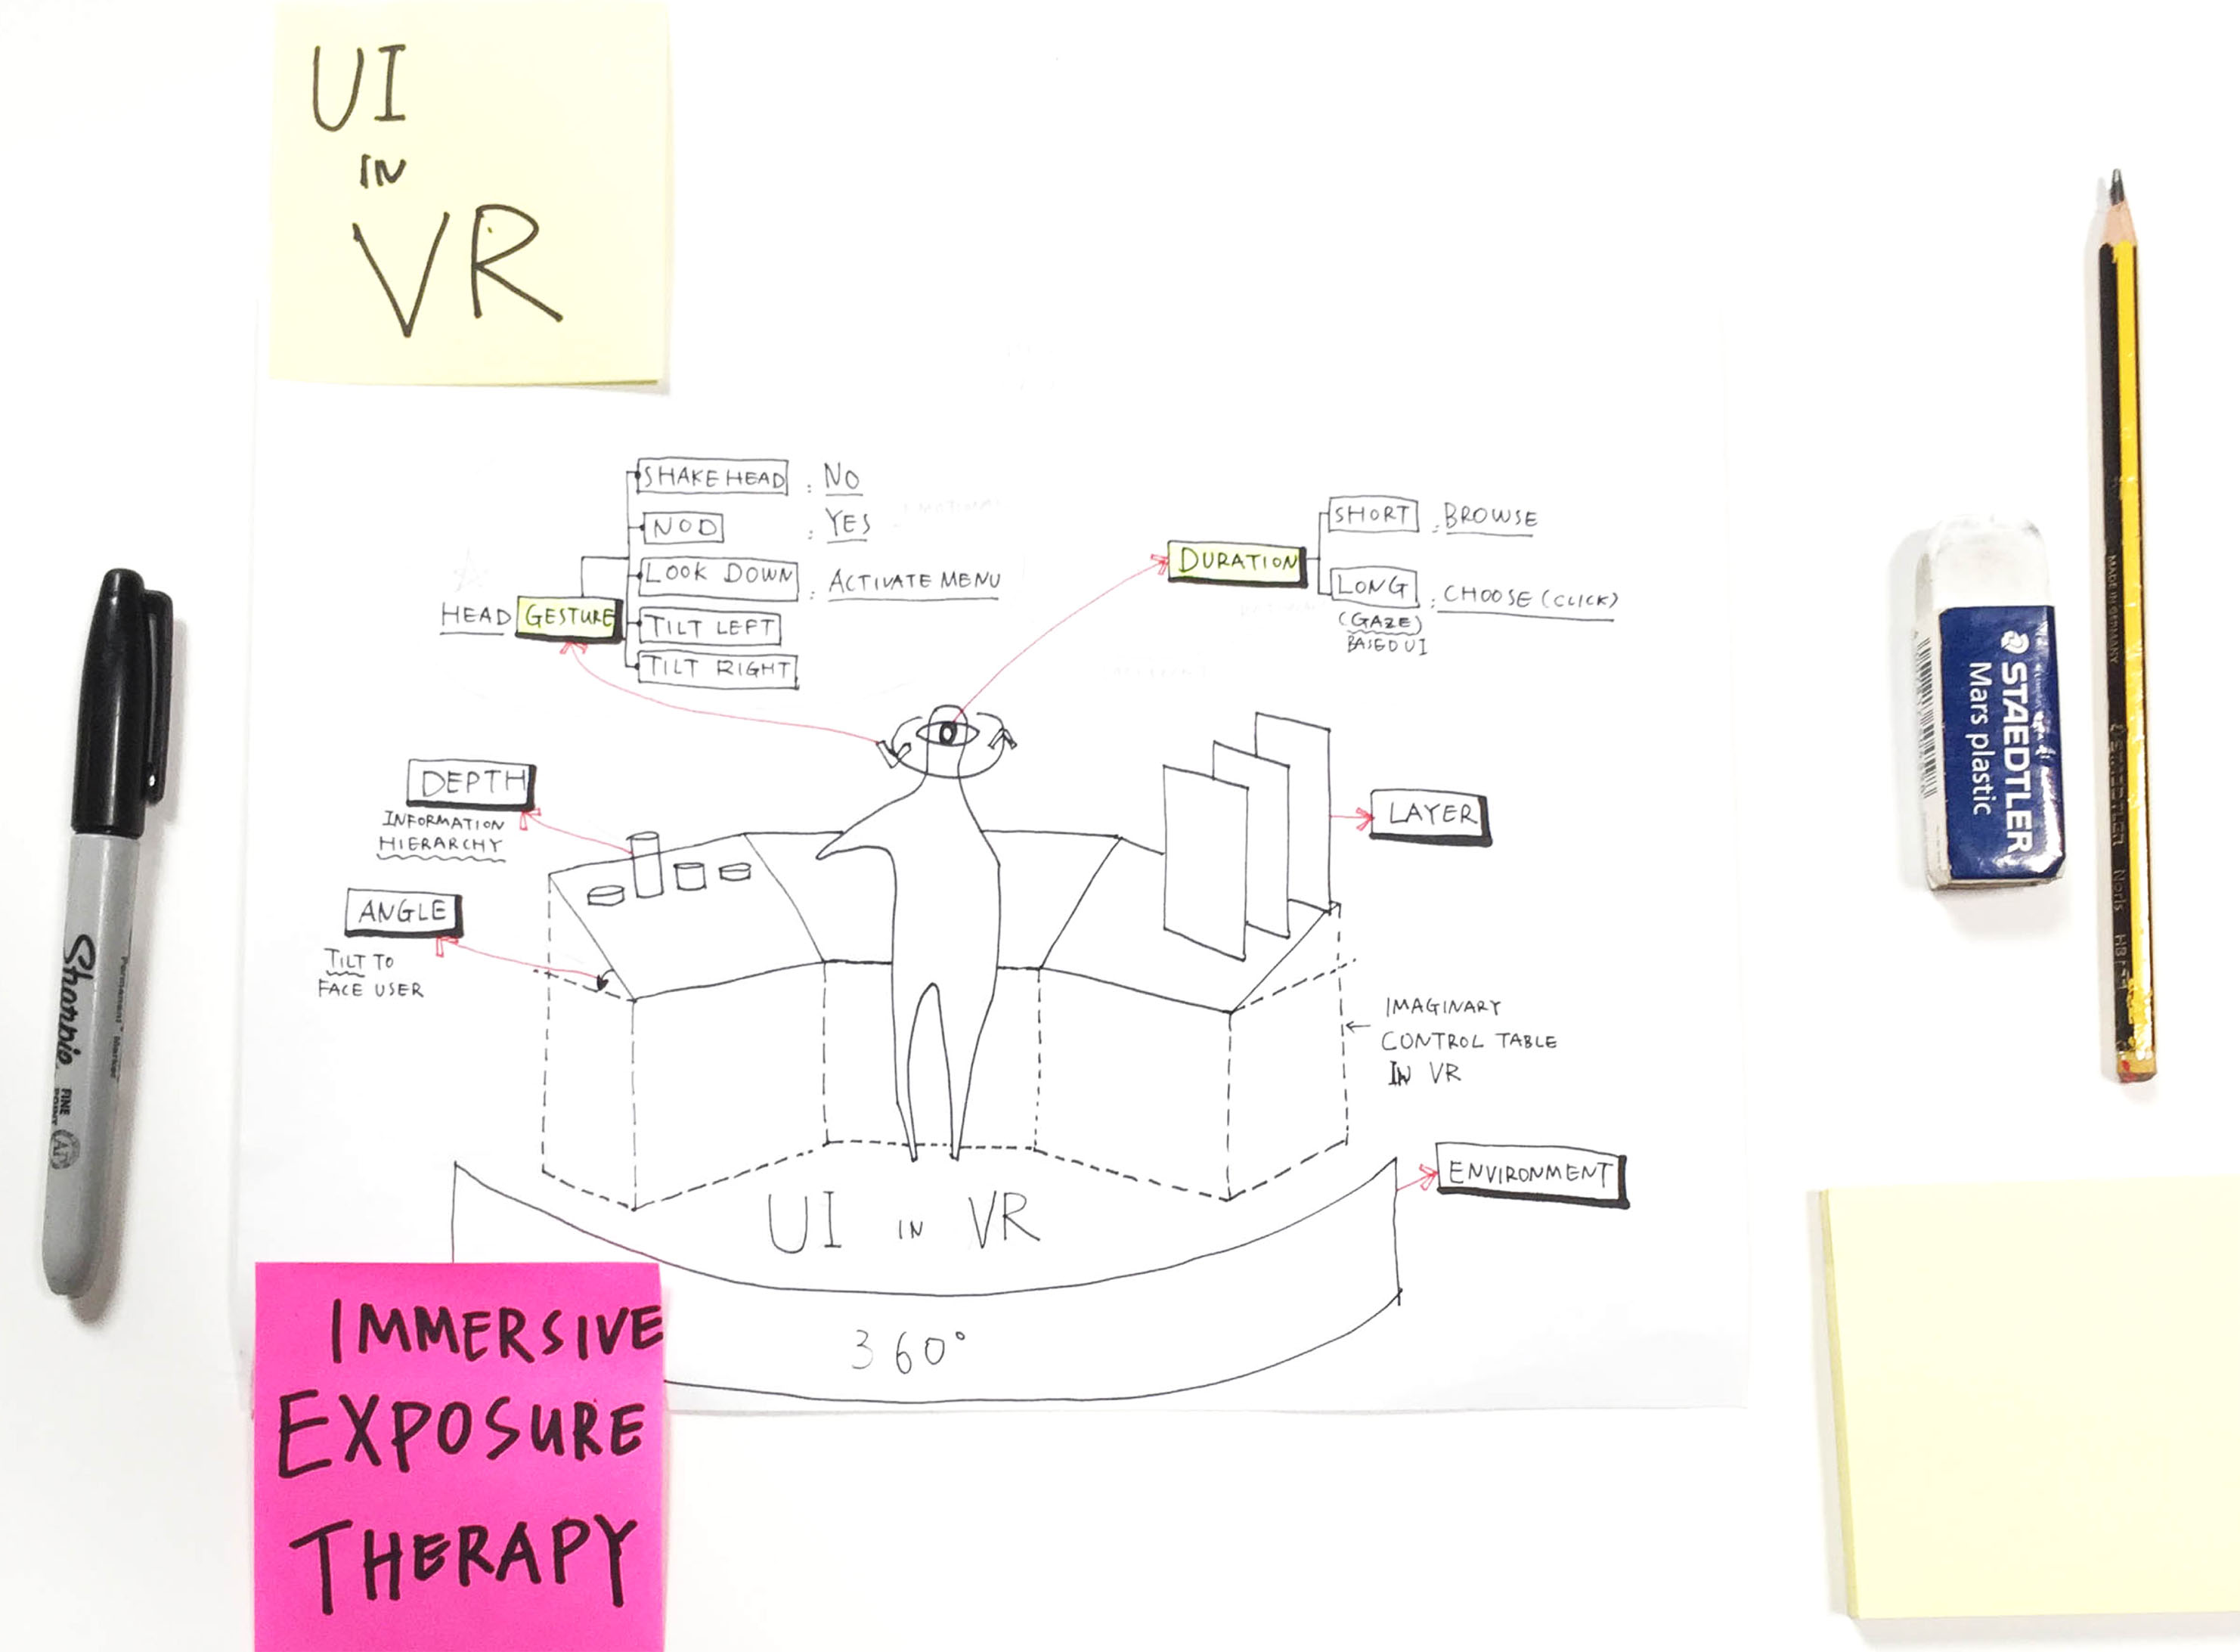 UI
IN
VR
SHAKE HEAD : NO
NOD : YES
LOOK DOWN : ACTIVATE MENU
HEAD GESTURE
TILT LEFT
TILT RIGHT
SHORT : BROWSE
DURATION
LONG : CHOOSE (CLICK)
(GAZE)
BASED UI
DEPTH
INFORMATION
HIERARCHY
ANGLE
TILT TO
FACE USER
LAYER
IMAGINARY
CONTROL TABLE
IN VR
ENVIRONMENT
UI IN VR
360°
IMMERSIVE
EXPOSURE
THERAPY
Sharpie
FINE
POINT
AP
Permanent Marker
STAEDTLER
Mars plastic
MADE IN GERMANY
STAEDTLER Noris HB